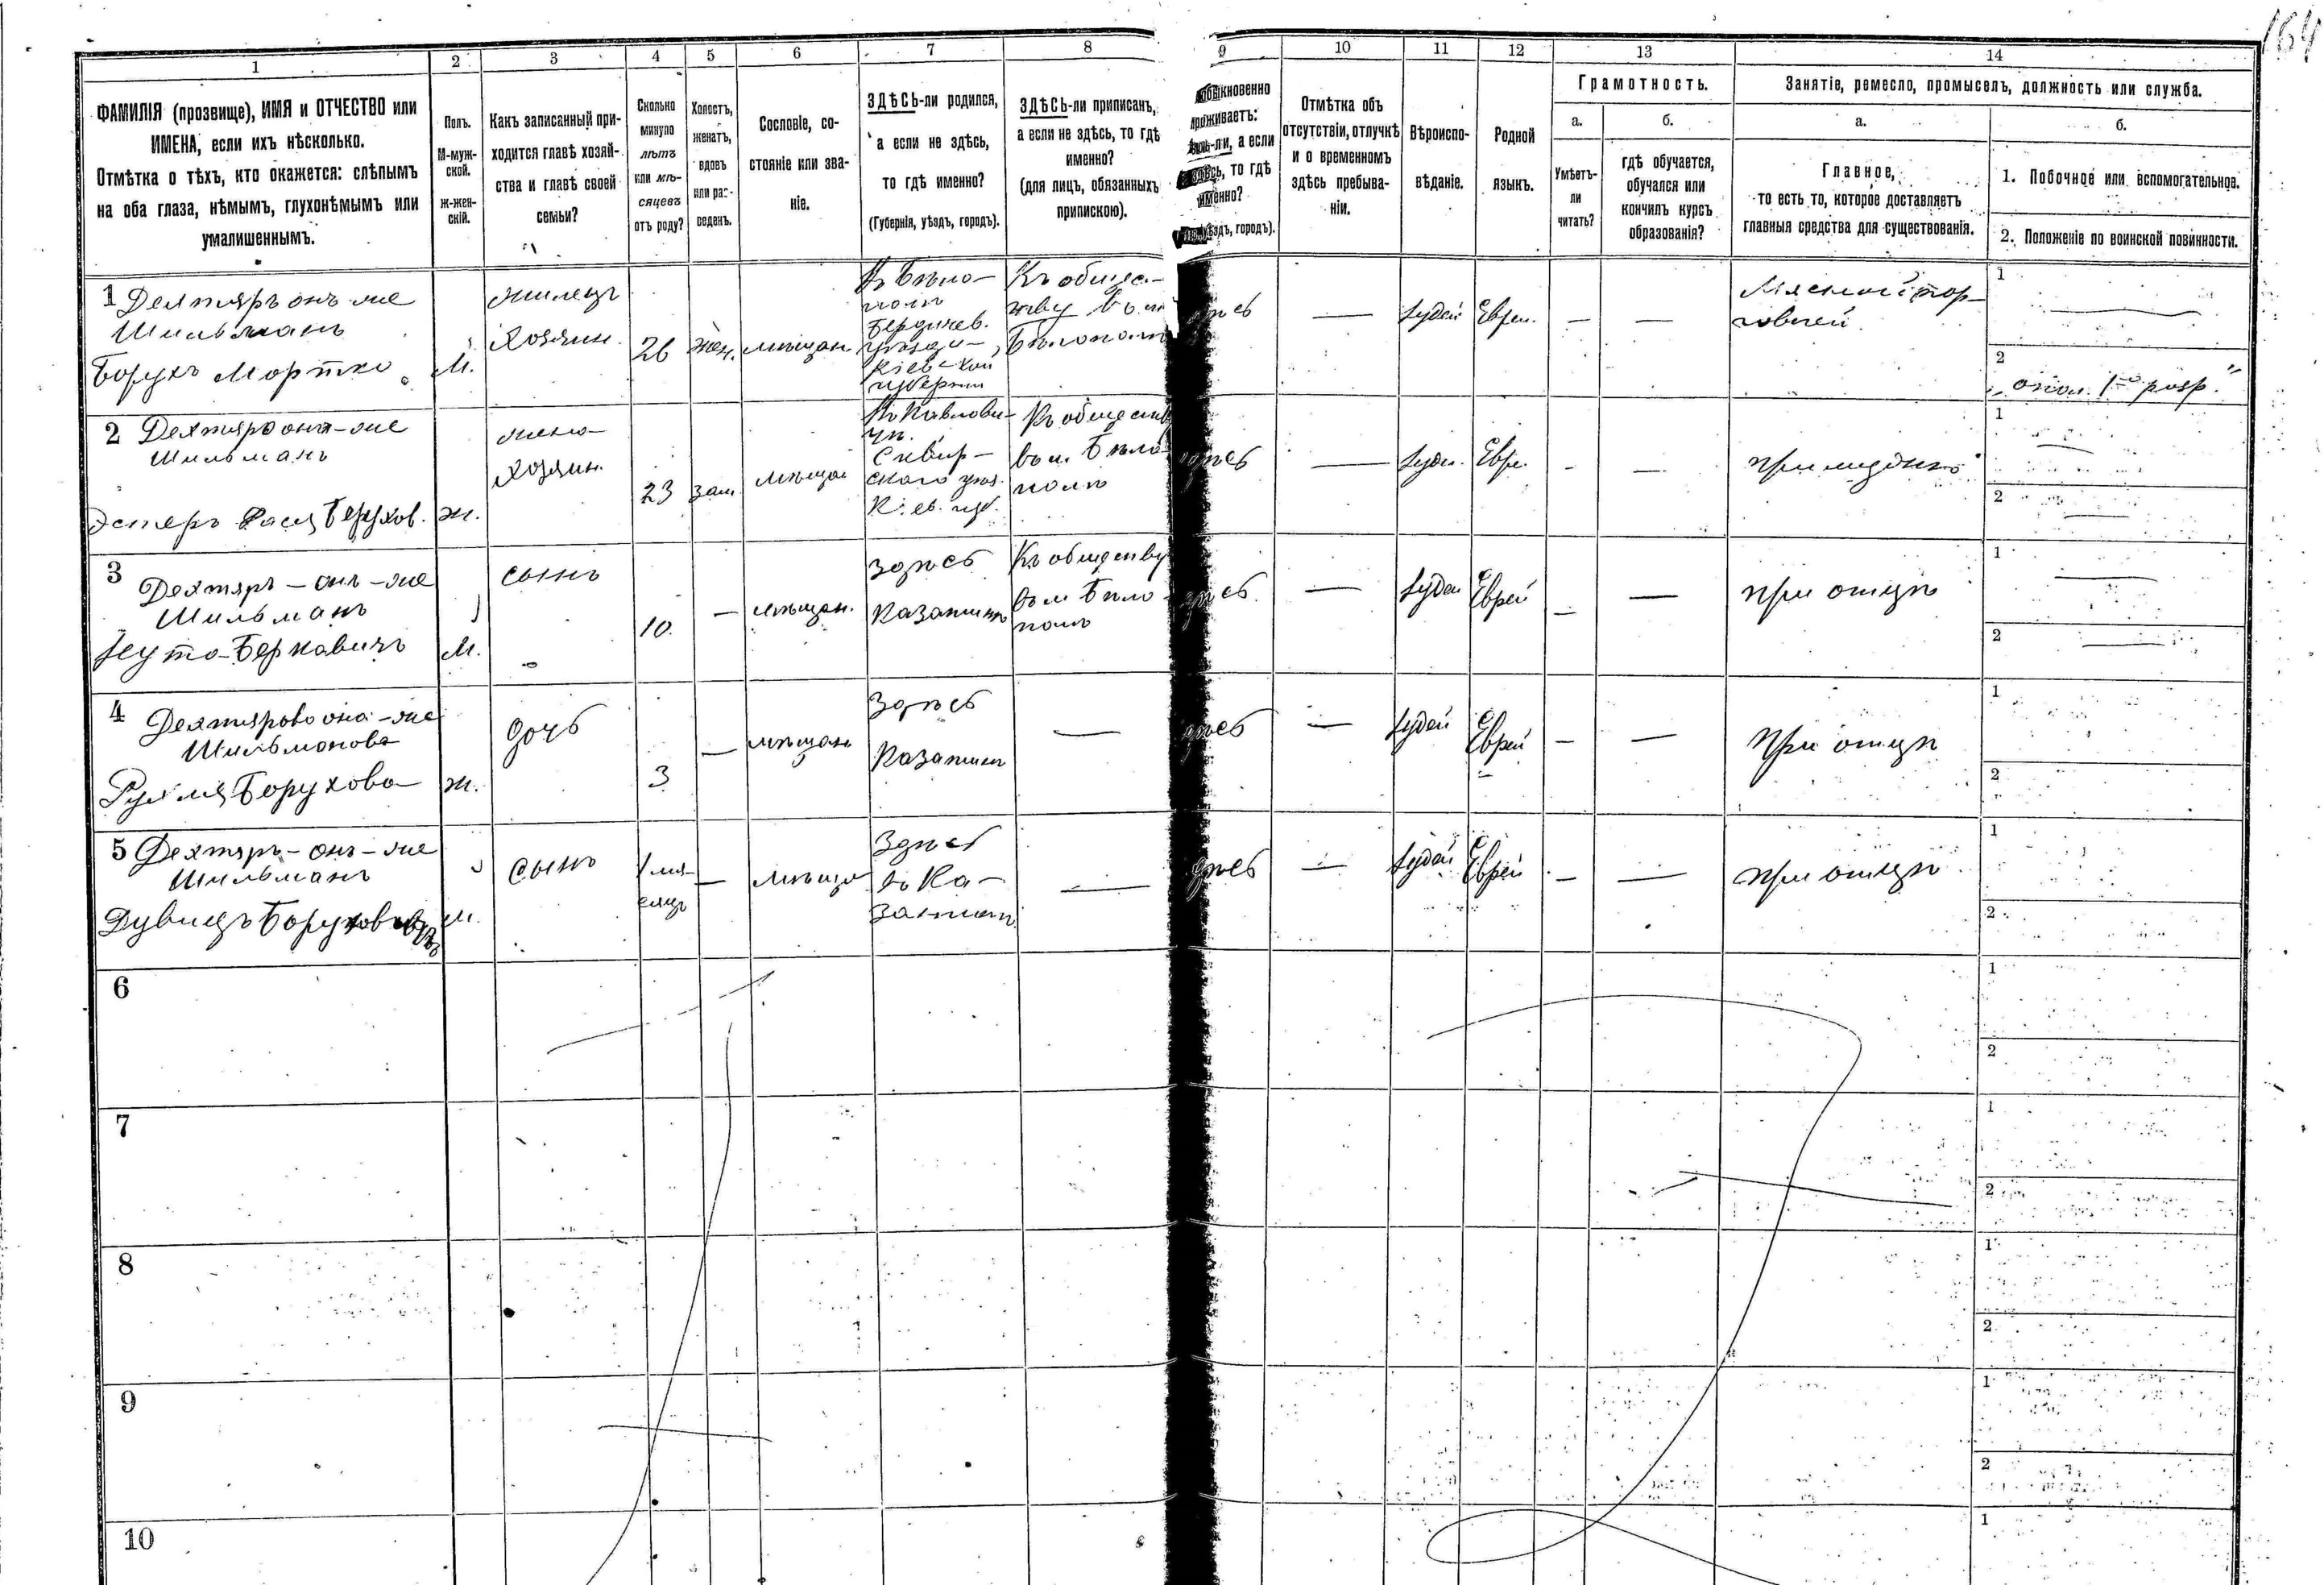 164
1
2
3
4
5
6
7
8
9
10
11
12
13
14
ФАМИЛІЯ (прозвище), ИМЯ и ОТЧЕСТВО или
ИМЕНА, если ихъ нѣсколько.
Отмѣтка о тѣхъ, кто окажется: слѣпымъ
на оба глаза, нѣмымъ, глухонѣмымъ или
умалишеннымъ.
Полъ.
М-муж-
ской.
Ж-жен-
скій.
Какъ записанный при-
ходится главѣ хозяй-
ства и главѣ своей
семьи?
Сколько
минуло
лѣтъ
или мѣ-
сяцевъ
отъ роду?
Холостъ,
женатъ,
вдовъ
или раз-
веденъ.
Сословіе, со-
стояніе или зва-
ніе.
ЗДѢСЬ-ли родился,
а если не здѣсь,
то гдѣ именно?
(Губернія, уѣздъ, городъ).
ЗДѢСЬ-ли приписанъ,
а если не здѣсь, то гдѣ
именно?
(для лицъ, обязанныхъ
припискою).
проживаетъ:
а если
то гдѣ
именно?
городъ).
Отмѣтка объ
отсутствіи, отлучкѣ
и о временномъ
здѣсь пребыва-
ніи.
Вѣроиспо-
вѣданіе.
Родной
языкъ.
Грамотность.
а.
Умѣетъ-
ли
читать?
б.
гдѣ обучается,
обучался или
кончилъ курсъ
образованія?
Занятіе, ремесло, промыселъ, должность или служба.
а.
Главное,
то есть то, которое доставляетъ
главныя средства для существованія.
б.
1. Побочное или вспомогательное.
2. Положеніе по воинской повинности.
1 Дехтяръ онъ же
Шильманъ
Борухъ Мортко
М.
жилецъ
Хозяин.
26
жен.
мѣщан.
Въ Бѣло-
полѣ
Бердичев.
уѣзда
Кіевской
губерніи
Къ общес-
тву въ м
Бѣлополѣ
Іудей
Еврей.
—
—
—
Мясной тор-
говлей
1
2
1го разр.
2 Дехтяро она-же
Шильманъ
Эстеръ Борухов.
Ж.
жена
Хозяин.
23
зам.
мѣщан
Сквир-
скаго уѣз.
Кіев. губ.
Къ обществу
въ м. Бѣло-
полѣ
—
Іуде.
Евре.
-
—
1
2
3 Дехтяръ-онъ-же
Шильманъ
Нута-Беркавичъ
М.
сынъ
10.
—
мѣщан.
Здѣсь
Казатинъ
Къ обществу
въ м Бѣло-
полѣ
—
Іудей
Еврей
—
—
при отцѣ
1
2
4 Дехтярова она-же
Шильманова
Рухля Борухова
Ж.
дочь
3
—
мѣщан
Здѣсь
Казатинъ
—
—
Іудей
Еврей
—
—
при отцѣ
1
2
5 Дехтяръ-онъ-же
Шильманъ
Дувидъ Боруховичъ
М.
сынъ
1 мѣ-
сяцъ
—
мѣщан
Здѣсь
въ Ка-
затинѣ
—
—
Іудей
Еврей
—
—
при отцѣ
1
2
6
1
2
7
1
2
8
1
2
9
1
2
10
1